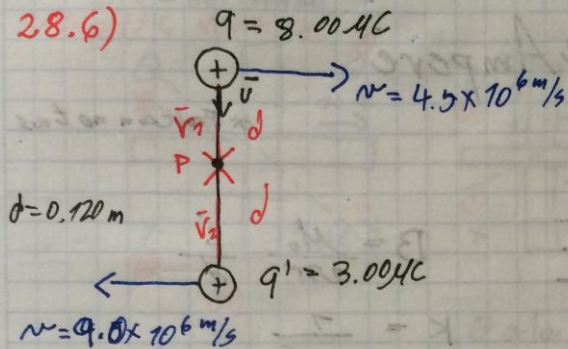 28.6)
q = 8.00 μC
+
v̄
v = 4.5 × 10⁶ m/s
r̄₁ d
P
d = 0.120 m
r̄₂ d
+
q' = 3.00 μC
v = 9.0 × 10⁶ m/s
B =
K =